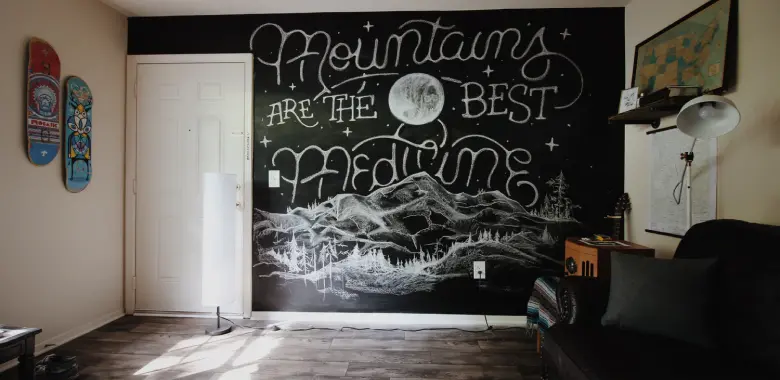 Mountains
ARE THE BEST
Medicine